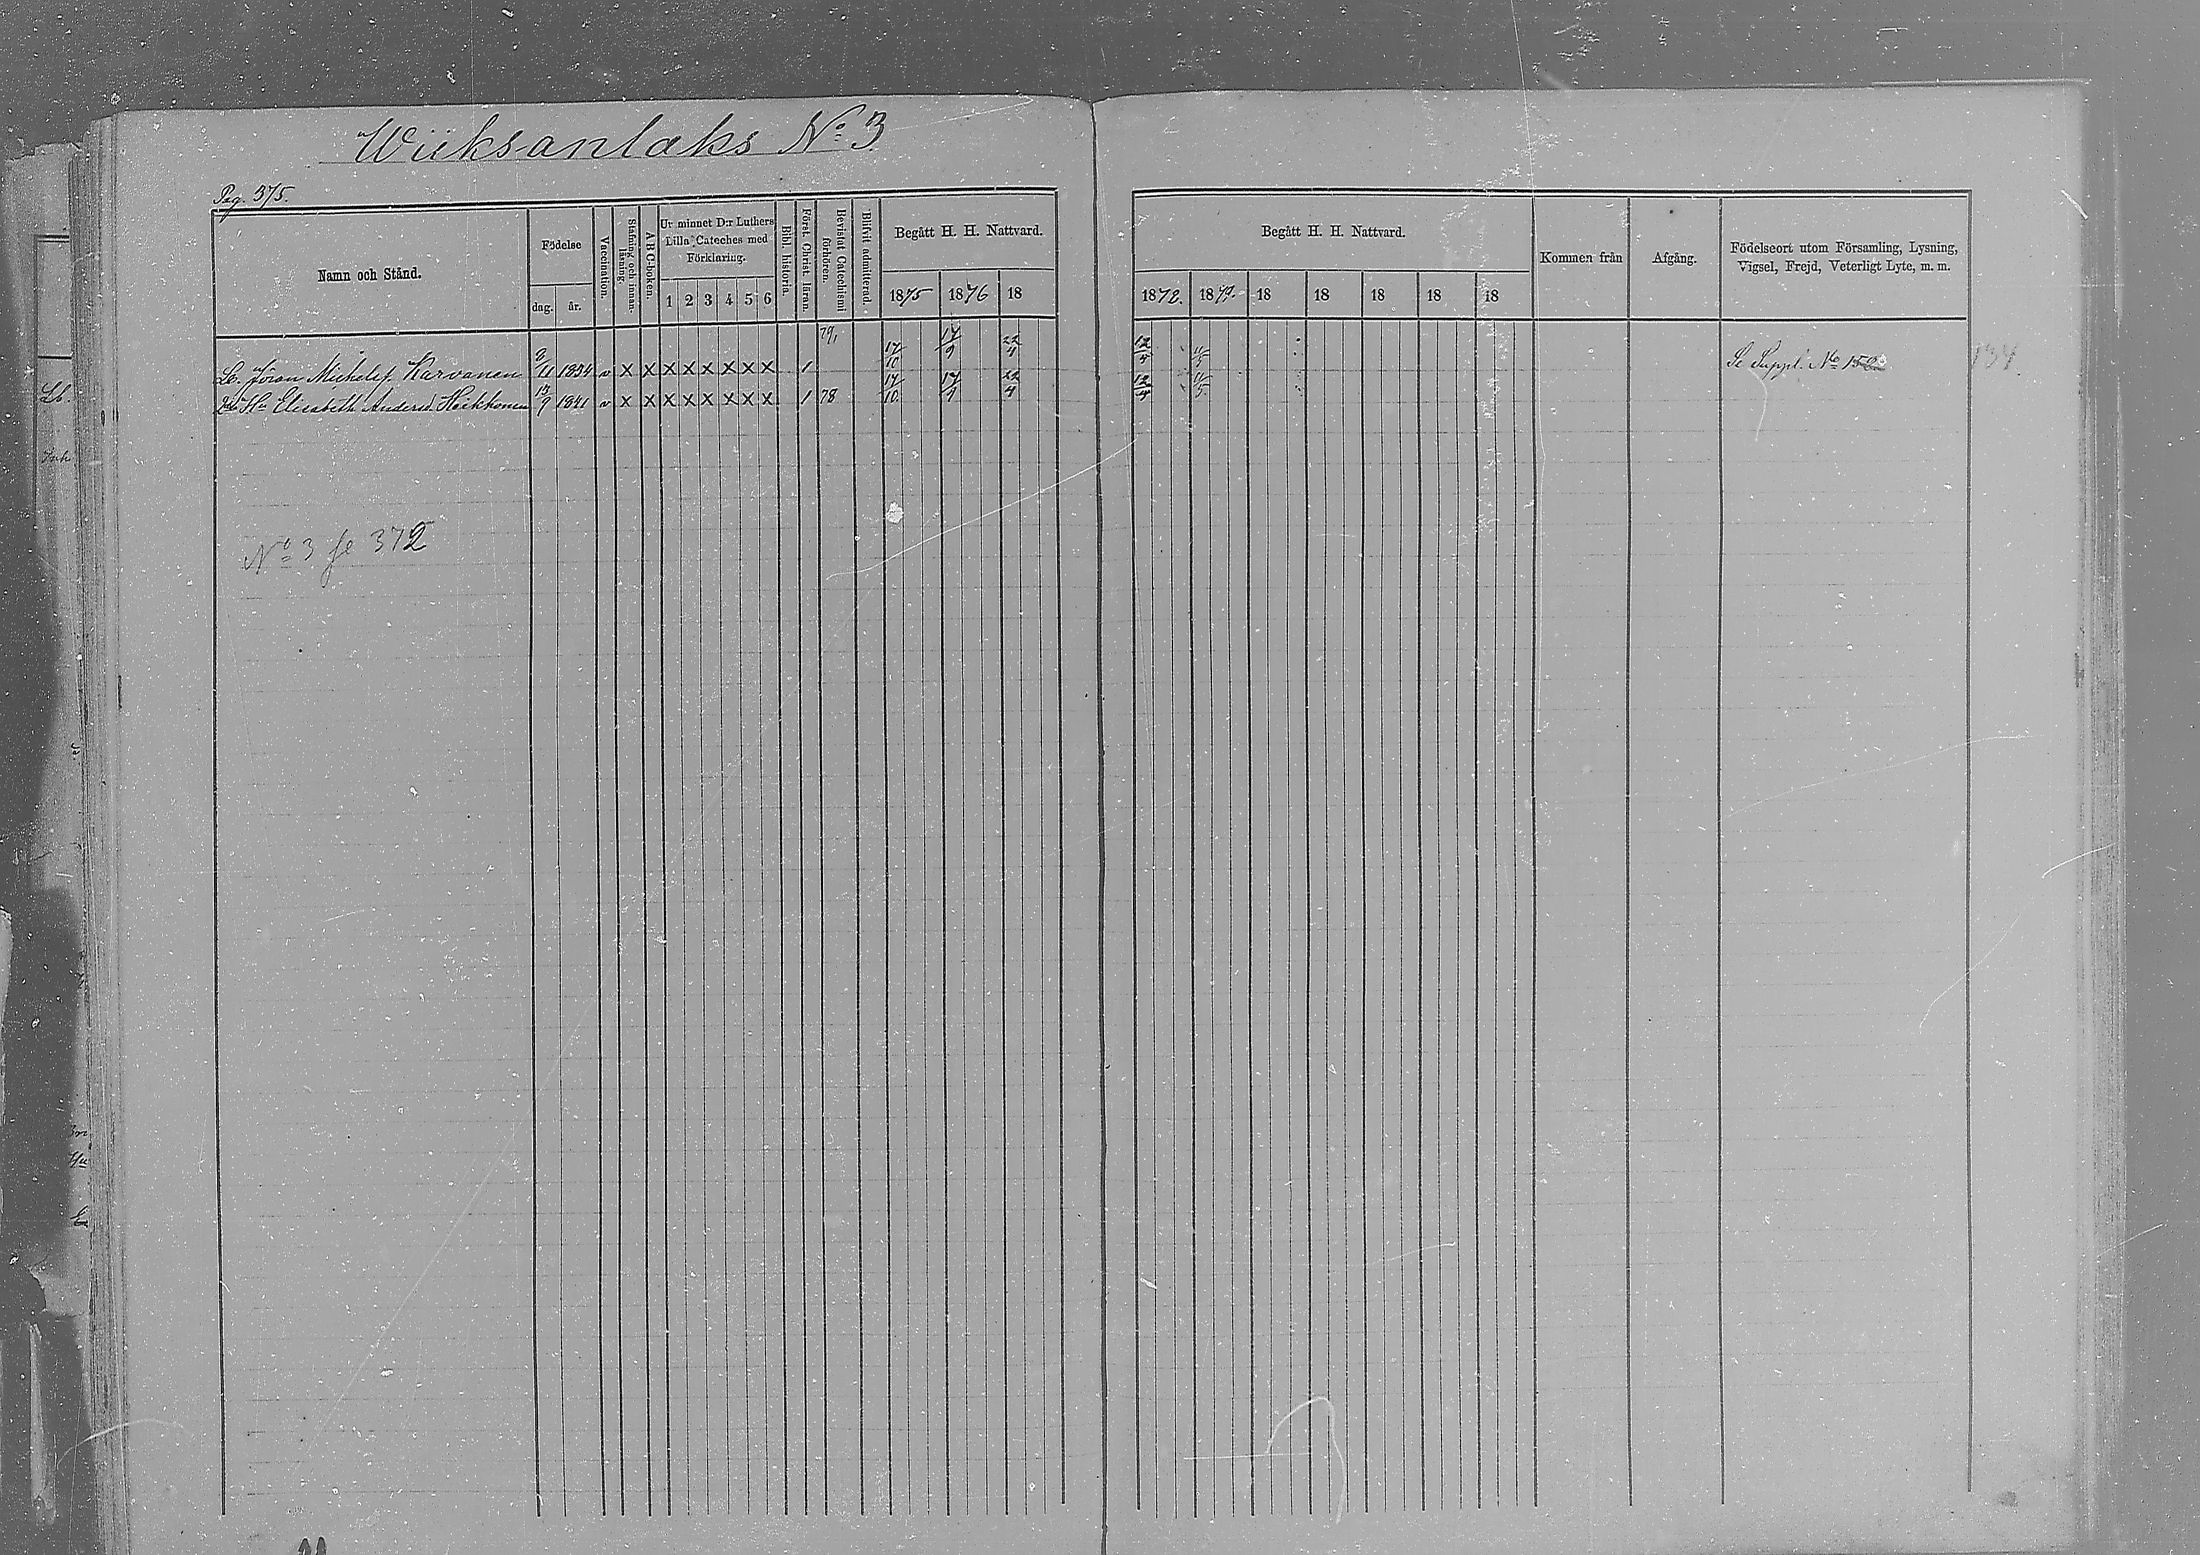 Wiiksanlaks No 3
Pag. 375.
Namn och Stånd.
Födelse
dag. år.
Vaccination.
Stafning och innanläsning.
A B C-boken.
Ur minnet D:r Luthers
Lilla Cateches med
Förklaring.
1 2 3 4 5 6
Bibl. historia.
Först. Christ. läran.
Bevistat Catechismi förhören.
Blifvit admitterad.
Begått H. H. Nattvard.
1875 1876 18
Begått H. H. Nattvard.
1878. 1879. 18 18 18 18 18
Kommen från
Afgång.
Födelseort utom Församling, Lysning,
Vigsel, Frejd, Veterligt Lyte, m. m.
79,
Jöran Michelss. Karvonen 1834 v x x x x x x x x 1 17/10 17/9 22/4 12/4 Se Suppl. No 15 134
Hu Elisabeth Andersd. Heikkonen 13/9 1841 v x x x x x x x x 1 78 17/10 17/9 22/4 12/4
No 3 se 372